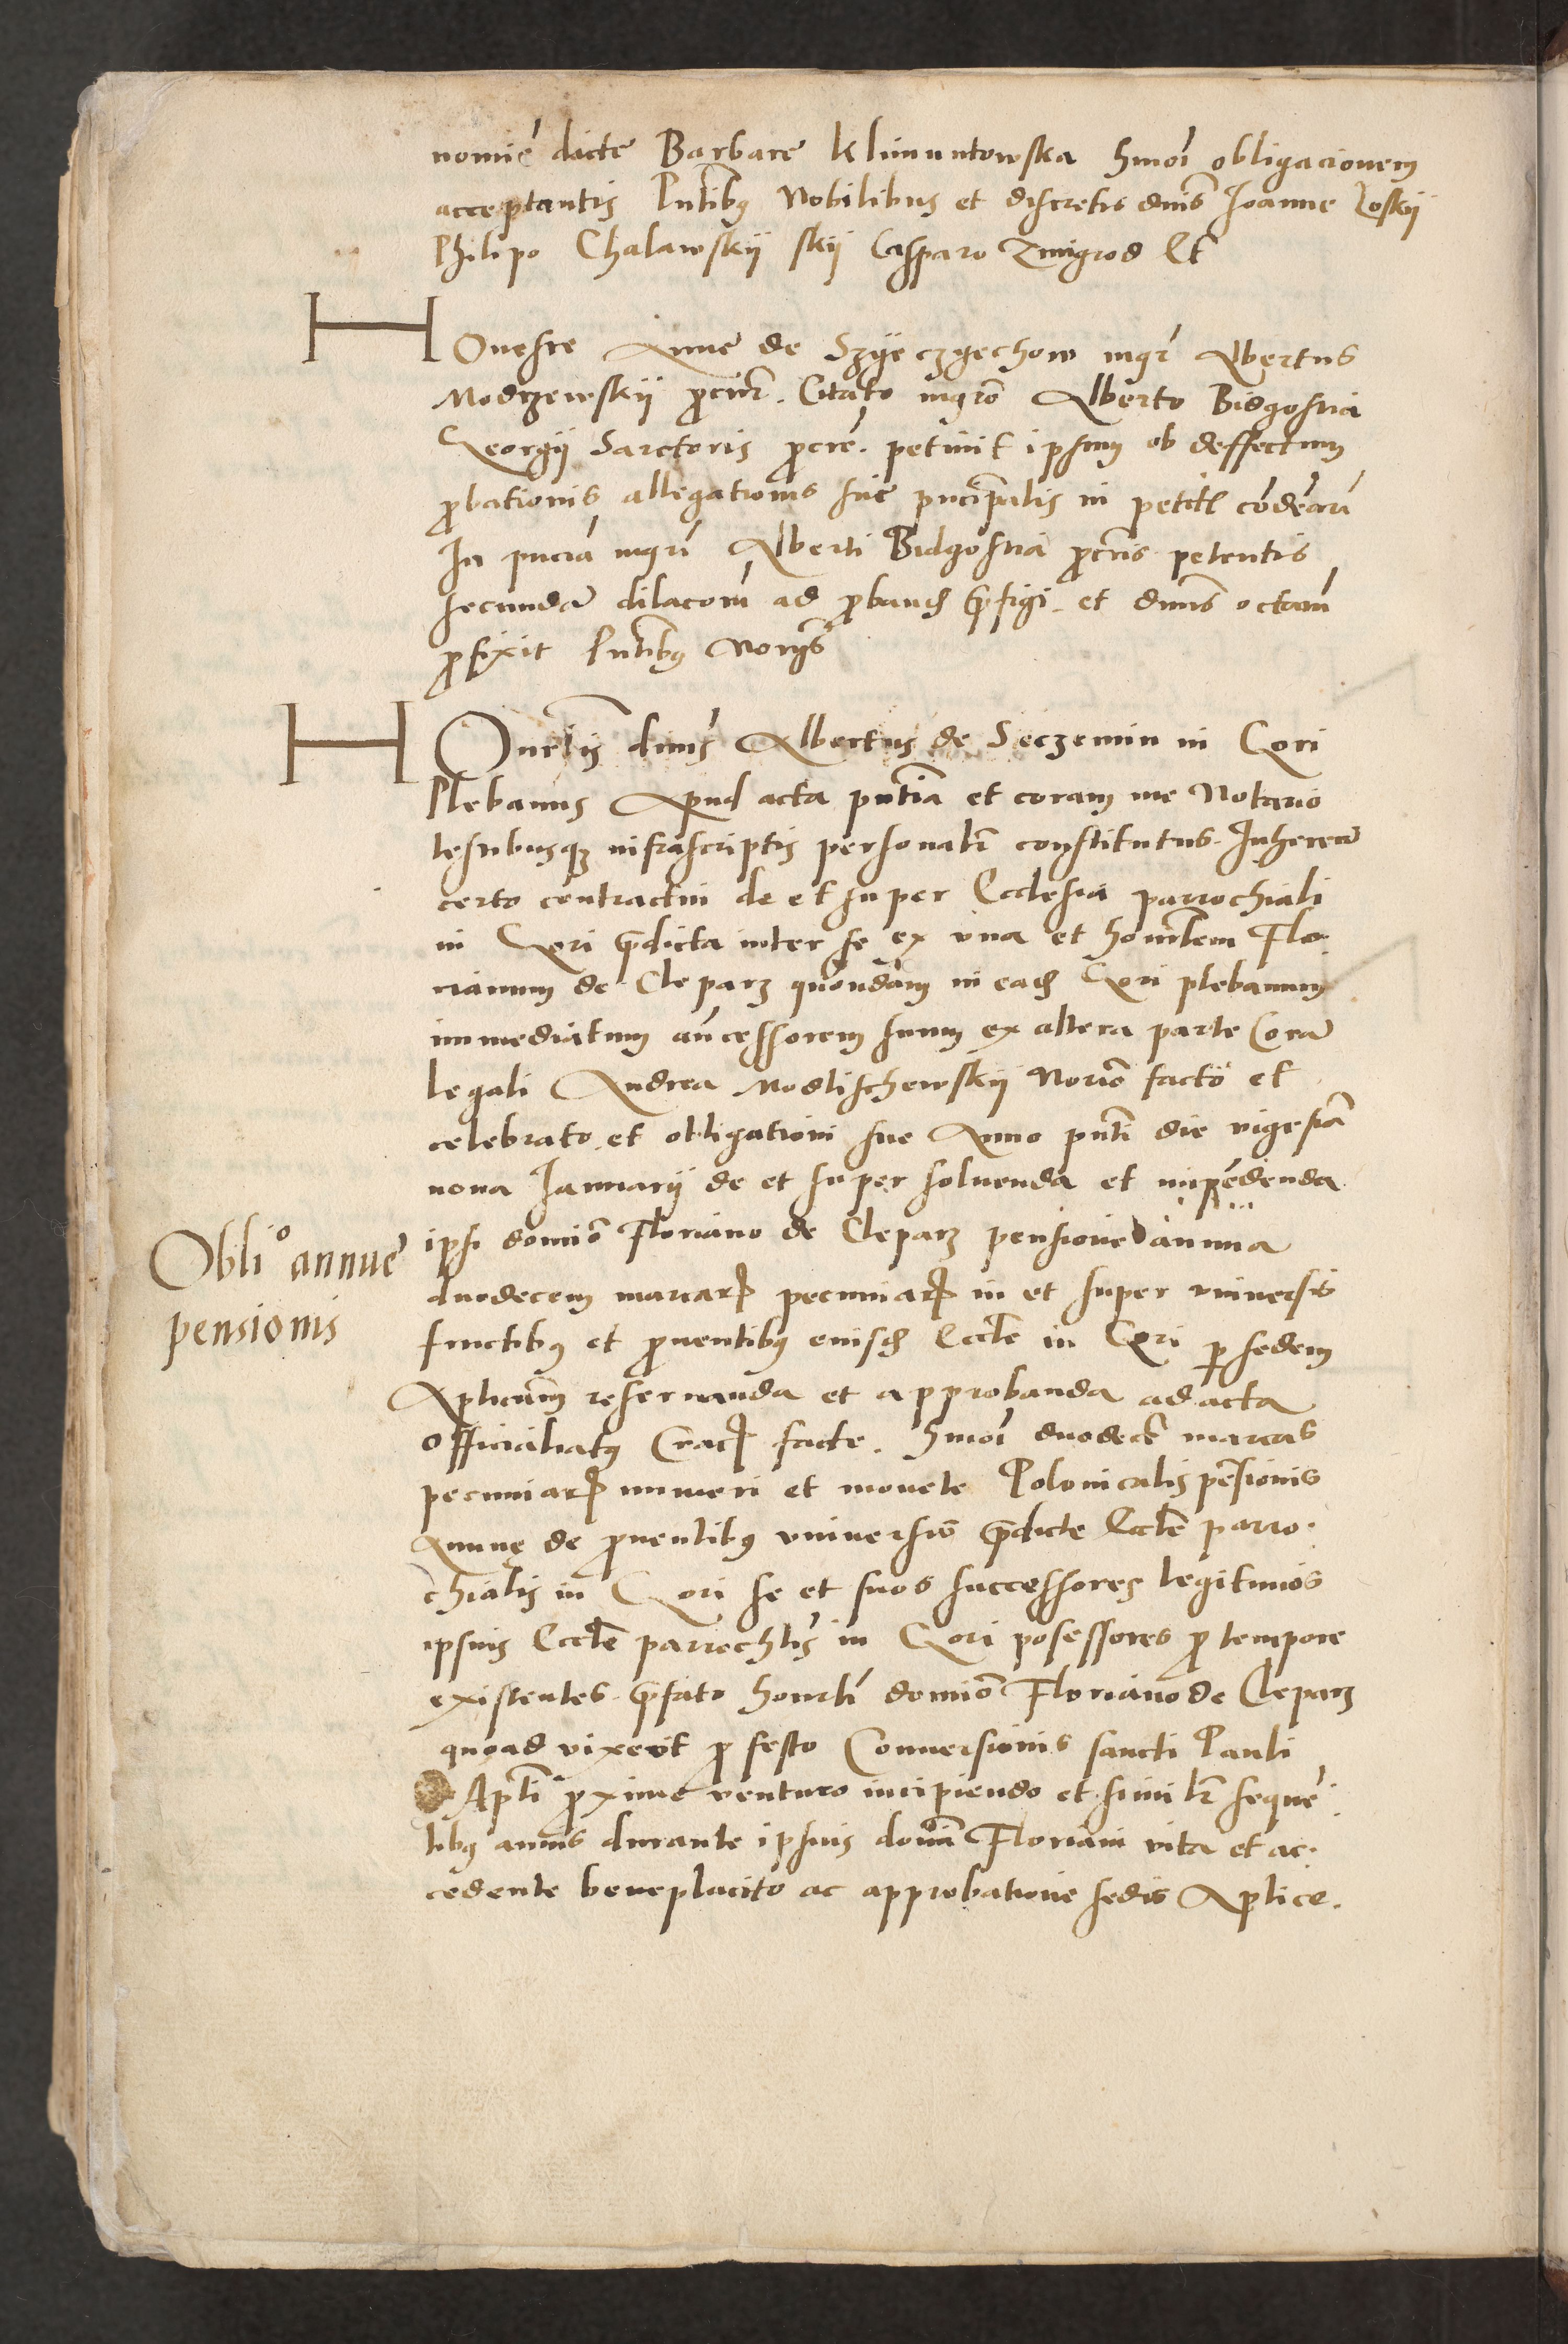 nomīe dicte Barbare Klimuntowska hmōi obligacionem
acceptantis Pntibꝰ Nobilibus et discretis dnis Joanne Loskij
Philipo Chalawskij skij Casparo Zmigrod Et
HOneste Anne de Szyeczyechow mgr Albertus
Modrzewskij procur. Citato mgro Alberto Bidgostia
Georgij Sartoris procre. petiuit ipsum ob deffectum
probationis allegationis sue pncipalis in petitis condēari
In pncia mgri Alberti Bidgostia procris petentis
secundā dilacōm ad proband prefigi. et dnus octauā
prefixit Pntibꝰ Norijs
HOnrlis dnus Albertus de Seczemin in Gori
Plebanus Apud acta pntia et coram me Notario
testibusqꝫ infrascriptis personalr constitutus. Inherendo
certo contractui de et super Ecclesia parrochiali
in Gori predicta inter se ex vna et honorabilem Flo-
rianum de Cleparz quondam in ead Gori plebanum
immediatum ancessorem suum ex altera parte Corā
legali Andrea Modlischewskij Norio facto et
celebrato. et obligationi sue Anno pnti die vigesīa
nona Januarij de et super soluenda et impēdenda
ipsi domīo Floriano de Cleparz pensione annua
duodecem marcarꝝ pecuniarꝝ in et super vniuersis
fructibꝰ et prouentibꝰ eiusd Eccle in Gori per sedem
Aplicam reseruanda et approbanda ad acta
Officialiatꝰ Cracꝝ facte. hmōi duodecē marcas
pecuniarꝝ numeri et monete Polonicalis pensionis
Annue de prouentibꝰ vniuersis predicte Eccle parro-
chialis in Gori se et suos successores legitimos
ipsius Eccle parrochlis in Gori posessores pro tempore
existentes. prefato honrli domīo Floriano de Cleparz
quoad vixerit pro festo Conuersionis sancti Pauli
Apli proxime venturo incipiendo et similr sequē-
tibꝰ annis durante ipsius domī Floriani vita et ac-
cedente beneplacito ac approbatione sedis Aplice.
Oblio annue
pensionis